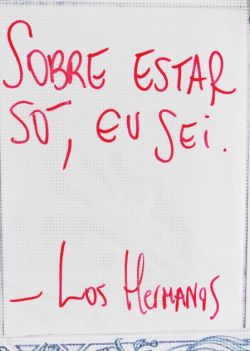 SOBRE ESTAR
SÓ, EU SEI.
- LOS HERMANOS